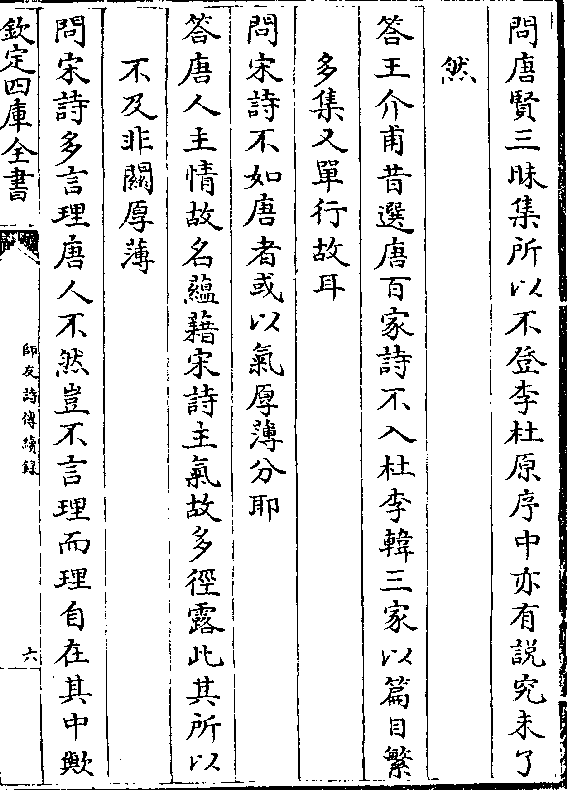 問唐賢三昧集所以不登李杜原序中亦有說究未了
然
答王介甫昔選唐百家詩不入杜李韓三家以篇目繁
多集又單行故耳
問宋詩不如唐者或以氣厚薄分耶
答唐人主情故多蘊藉宋詩主氣故多徑露此其所以
不及非關厚薄
問宋詩多言理唐人不然豈不言理而理自在其中歟
欽定四庫全書
師友詩傳續錄
六